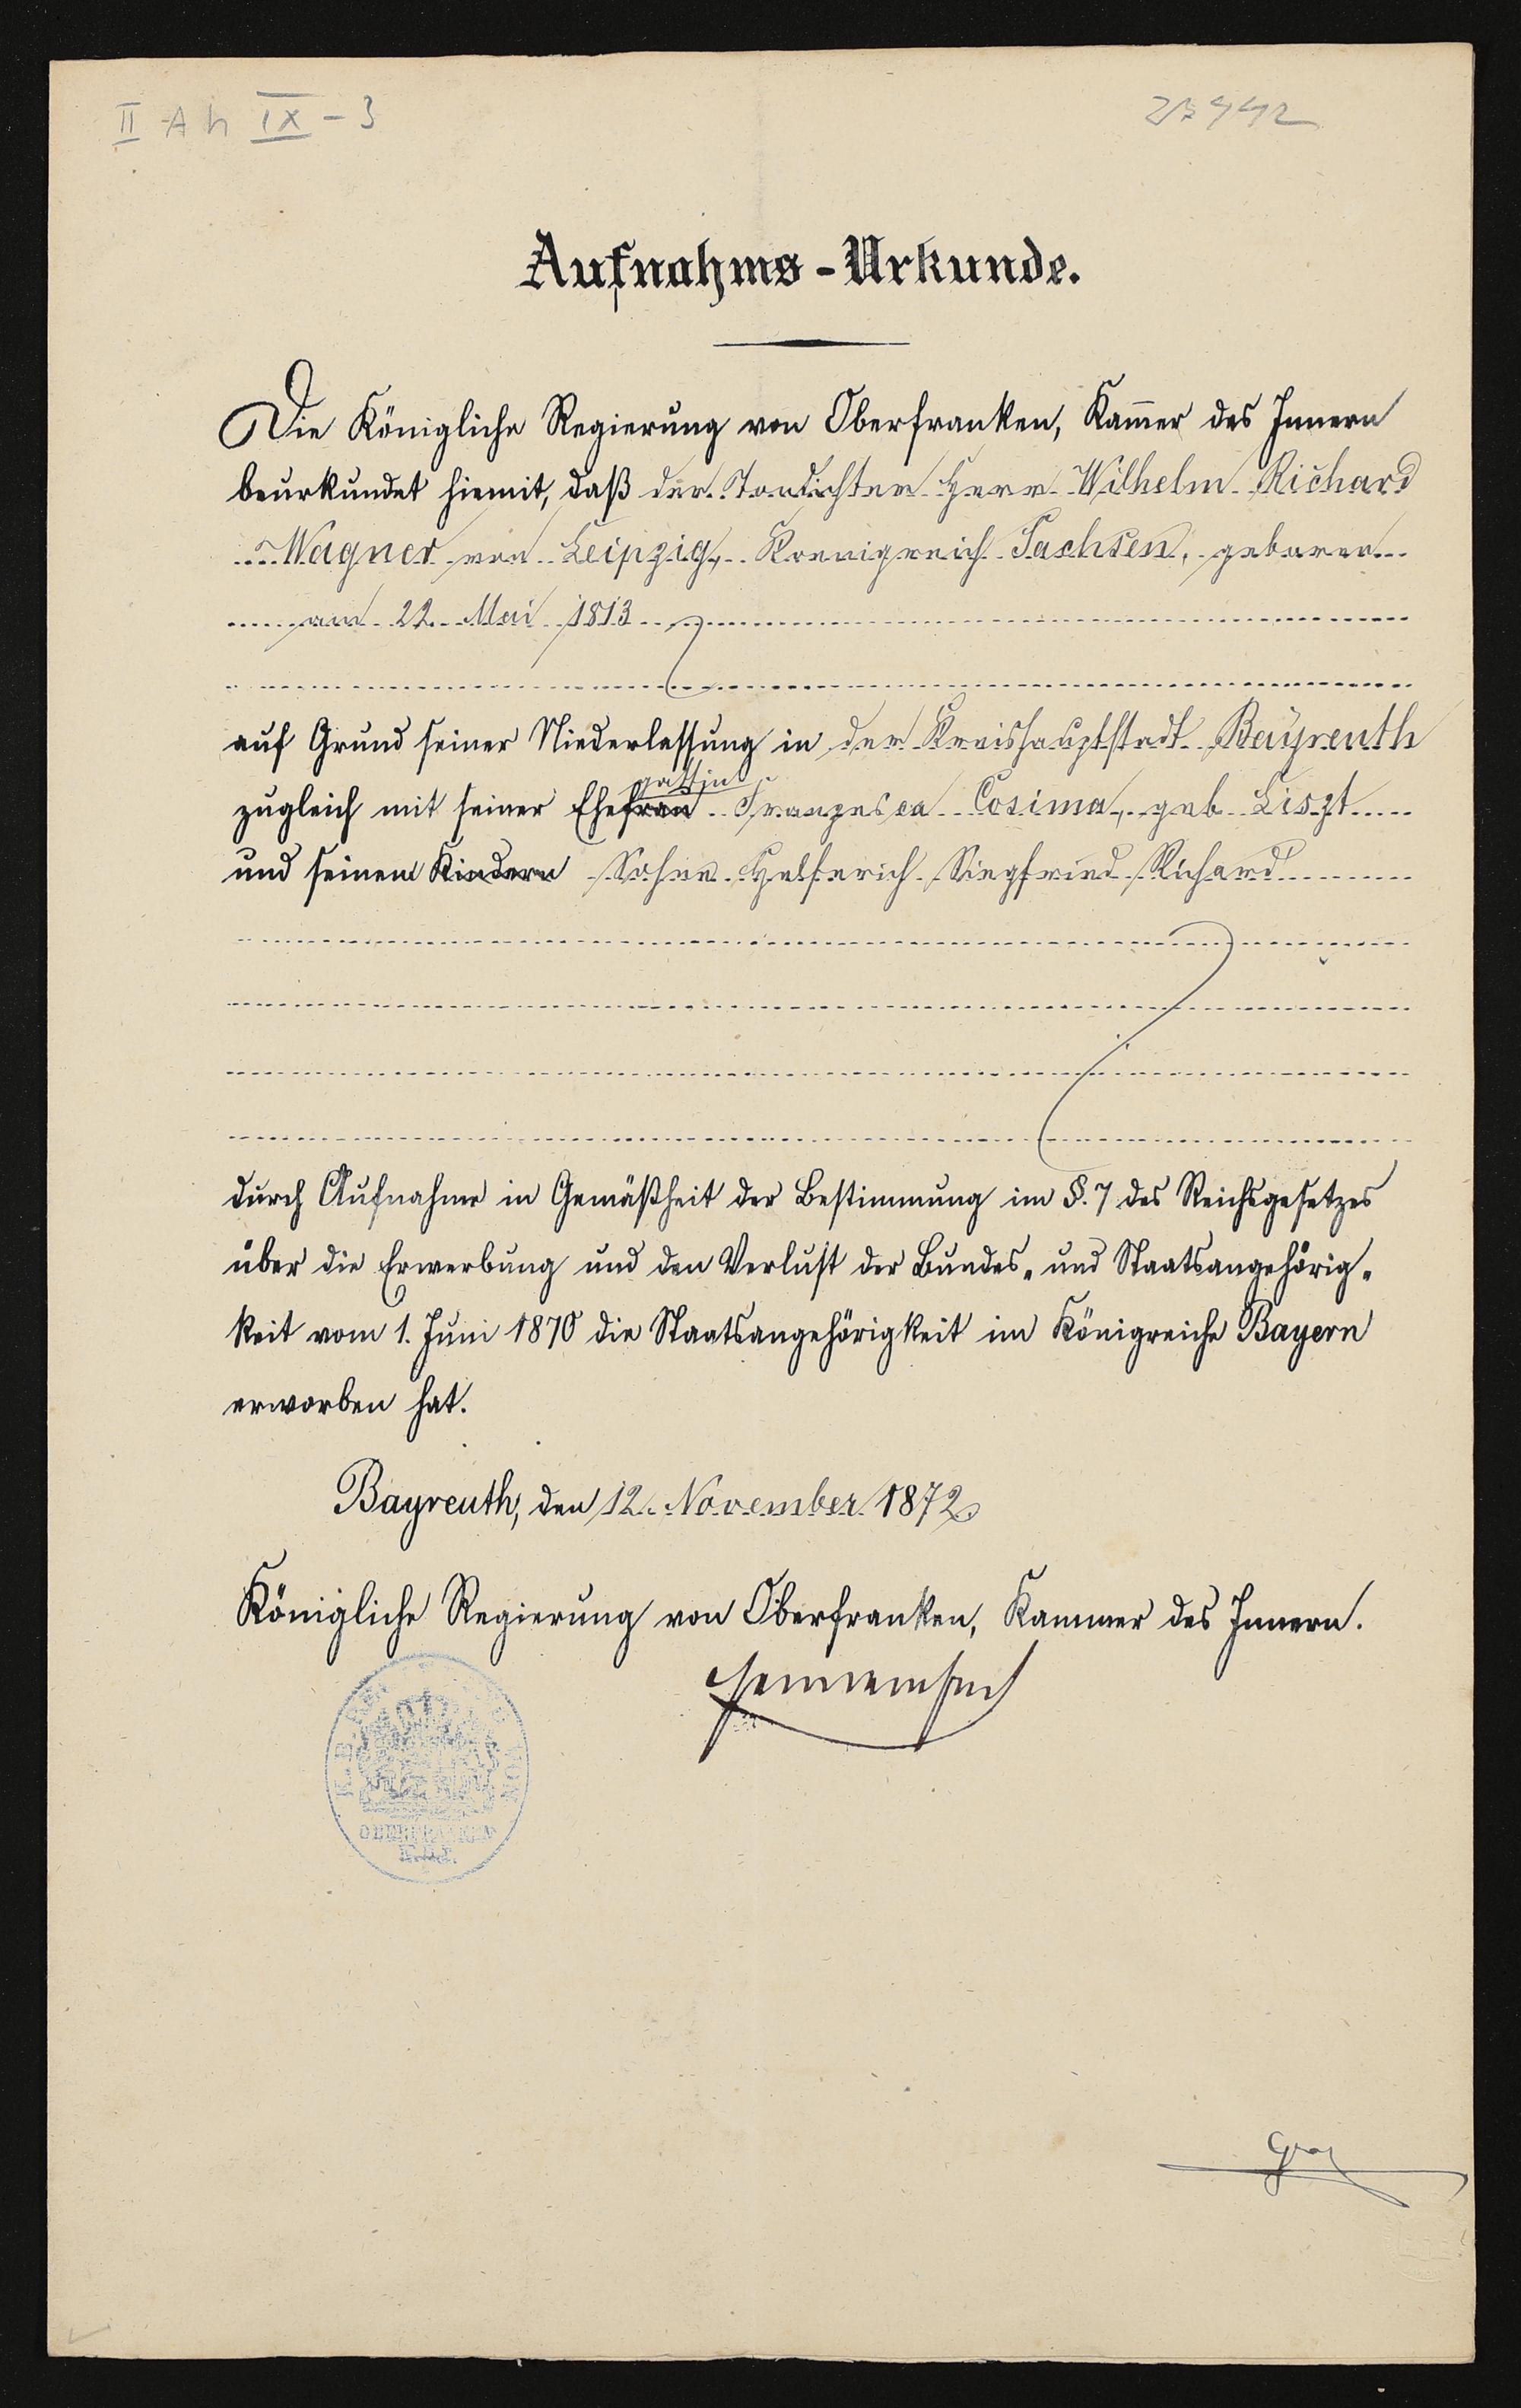 II A h IX - 3
Aufnahms-Urkunde.
Die Königliche Regierung von Oberfranken, Kam̅er des Innern
beurkundet hiemit, daß der Tondichter Herr Wilhelm Richard
Wagner von Leipzig, Koenigreich Sachsen, geboren
am 22. Mai 1813
auf Grund seiner Niederlassung in der Kreishauptstadt Bayreuth
gattin
zugleich mit seiner Ehefrau Franzesca Cosima, geb. Liszt
und seinem Kindern Sohne Helferich Siegfried Richard
durch Aufnahme in Gemäßheit der Bestimmung im §. 7 des Reichsgesetzes
über die Erwerbung und den Verlust der Bundes- und Staatsangehörig-
keit vom 1. Juni 1870 die Staatsangehörigkeit im Königreiche Bayern
erworben hat.
Bayreuth, den 12. November 1872.
Königliche Regierung von Oberfranken, Kammer des Innern.
OBERFRANKEN
K.D.I.